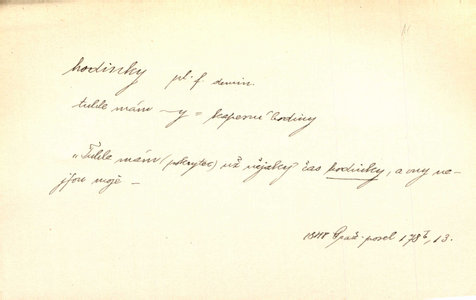 hodinky pl. f. demin.
tuhle mám ~y = kapesní hodiny
„Tuhle mám (pokrytec) už nějaký čas hodinky, a ony nejsou
moje –
1848 Praž. posel 178 I, 13.